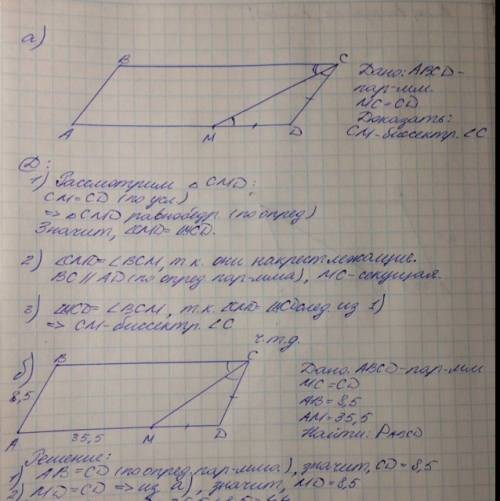 а)
B C
A M D
Дано: ABCD -
пар-мм
MC = CD
Доказать:
CM - биссектр. ∠C
Д:
1) Рассмотрим △ CMD:
CM = CD (по усл)
⇒ △ CMD равнобедр (по опред)
Значит, ∠CMD = ∠MCD.
2) ∠CMD = ∠BCM, т.к. они накрест лежащие.
BC || AD (по опред пар-мма), MC - секущая.
3) ∠MCD = ∠BCM, т.к. ∠CMD = ∠MCD след. из 1)
⇒ CM - биссектр. ∠C
ч.т.д.
б)
B C
8,5
A 35,5 M D
Дано: ABCD - пар-мм
MC = CD
AB = 8,5
AM = 35,5
Найти: PABCD
Решение:
1) AB = CD (по опред. пар-мма), значит, CD = 8,5
2) MD = CD ⇒ из а), значит, MD = 8,5